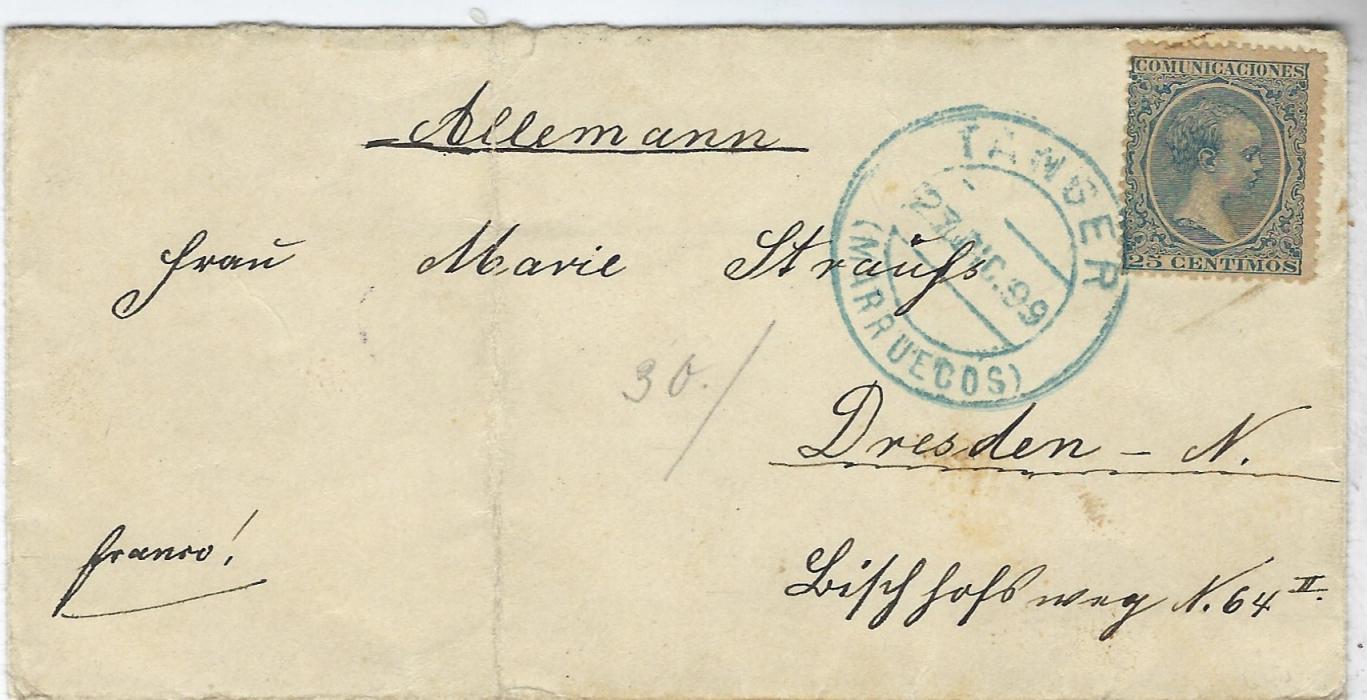 Allemann
COMUNICACIONES
25 CENTIMOS
TANGER
27 DIC. 99
(MARRUECOS)
Frau Marie Straufs
30./
Dresden - N.
franco!
Bischhofsweg N. 64 II.